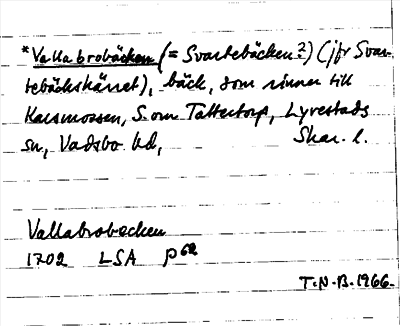 *Vallabrobäcken (= Svartebäcken?) (jfr Svar-
tebäckskärret), bäck, som rinner till
Karsmossen, S. om Tattertorp, Lyrestads
sn, Vadsbo hd, Skar. l.
Vallabrobecken
1702 LSA P62
T.N.B. 1966.